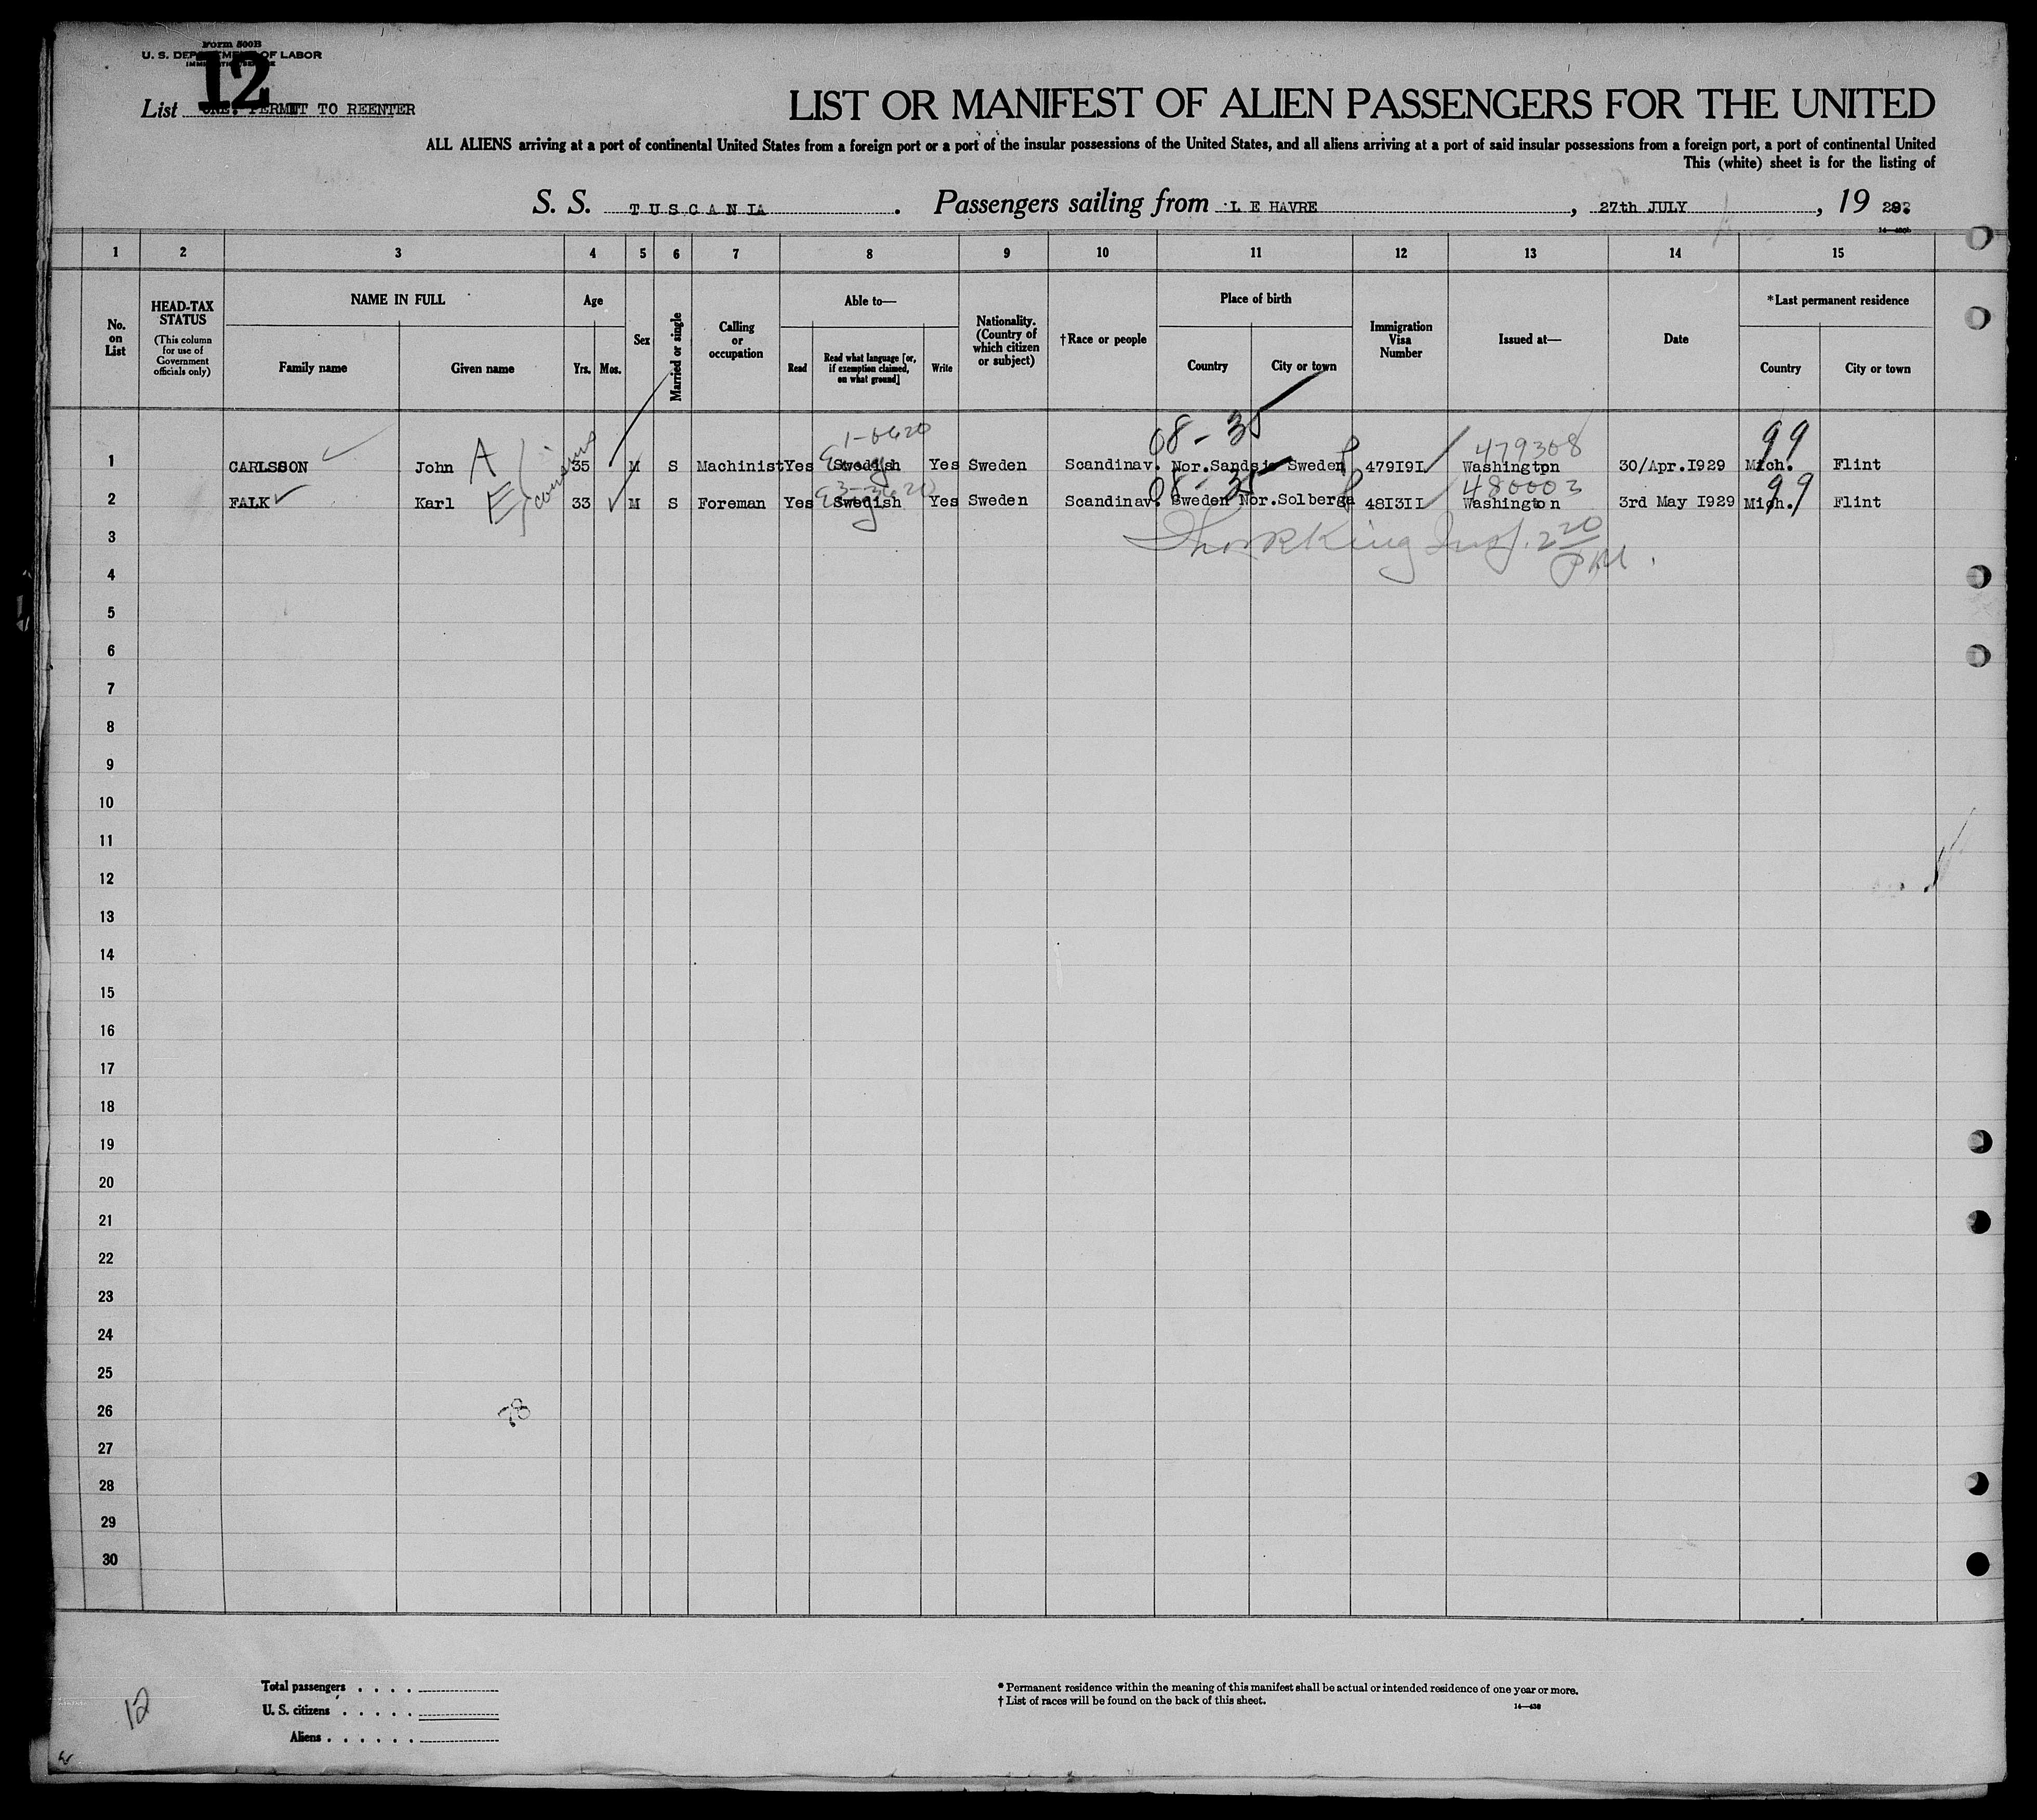 Form 500B
U. S. DEPARTMENT OF LABOR
12
List ONE. PERMIT TO REENTER
LIST OR MANIFEST OF ALIEN PASSENGERS FOR THE UNITED
ALL ALIENS arriving at a port of continental United States from a foreign port or a port of the insular possessions of the United States, and all aliens arriving at a port of said insular possessions from a foreign port, a port of continental United
This (white) sheet is for the listing of
S. S. TUSCANIA . Passengers sailing from LE HAVRE , 27th JULY , 19 29
1 2 3 4 5 6 7 8 9 10 11 12 13 14 15
No. on List
HEAD-TAX STATUS
(This column for use of Government officials only)
NAME IN FULL
Family name Given name
Age
Yrs. Mos.
Sex
Married or single
Calling or occupation
Able to—
Read Read what language [or, if exemption claimed, on what ground] Write
Nationality. (Country of which citizen or subject)
†Race or people
Place of birth
Country City or town
Immigration Visa Number
Issued at—
Date
*Last permanent residence
Country City or town
1-6620 08-35 479308 99
1 CARLSSON John A 35 M S Machinist Yes Swedish Yes Sweden Scandinav. Nor. Sweden 479I9I Washington 30/Apr.I929 Mich. Flint
cousins
3-3620 08-35 480003 99
2 FALK Karl E 33 M S Foreman Yes Swedish Yes Sweden Scandinav. Sweden Nor.Solberga 48I3II Washington 3rd May I929 Mich. Flint
3 King Insp. 2 20 PM.
4
5
6
7
8
9
10
11
12
13
14
15
16
17
18
19
20
21
22
23
24
25
26
78
27
28
29
30
12
Total passengers . . . .
U. S. citizens . . . . .
Aliens . . . . . .
* Permanent residence within the meaning of this manifest shall be actual or intended residence of one year or more.
† List of races will be found on the back of this sheet.